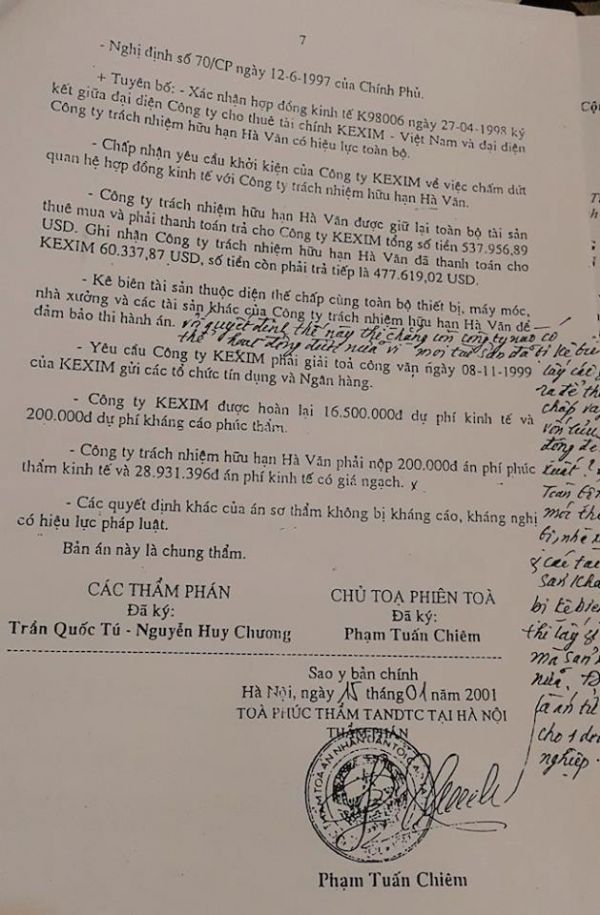 7
- Nghị định số 70/CP ngày 12-6-1997 của Chính Phủ.
+ Tuyên bố: - Xác nhận hợp đồng kinh tế K98006 ngày 27-04-1998 ký
kết giữa đại diện Công ty cho thuê tài chính KEXIM - Việt Nam và đại diện
Công ty trách nhiệm hữu hạn Hà Văn có hiệu lực toàn bộ.
- Chấp nhận yêu cầu khởi kiện của Công ty KEXIM về việc chấm dứt
quan hệ hợp đồng kinh tế với Công ty trách nhiệm hữu hạn Hà Văn.
- Công ty trách nhiệm hữu hạn Hà Văn được giữ lại toàn bộ tài sản
thuê mua và phải thanh toán trả cho Công ty KEXIM tổng số tiền 537.956,89
USD. Ghi nhận Công ty trách nhiệm hữu hạn Hà Văn đã thanh toán cho
KEXIM 60.337,87 USD, số tiền còn phải trả tiếp là 477.619,02 USD.
- Kê biên tài sản thuộc diện thế chấp cùng toàn bộ thiết bị, máy móc,
nhà xưởng và các tài sản khác của Công ty trách nhiệm hữu hạn Hà Văn để
đảm bảo thi hành án. với quyết định thế này thì chẳng còn công ty nào có
thể hoạt động được nữa vì mọi tài sản đã bị kê biên
- Yêu cầu Công ty KEXIM phải giải toả công văn ngày 08-11-1999
của KEXIM gửi các tổ chức tín dụng và Ngân hàng.
- Công ty KEXIM được hoàn lại 16.500.000đ dự phí kinh tế và
200.000đ dự phí kháng cáo phúc thẩm.
- Công ty trách nhiệm hữu hạn Hà Văn phải nộp 200.000đ án phí phúc
thẩm kinh tế và 28.931.396đ án phí kinh tế có giá ngạch.
- Các quyết định khác của án sơ thẩm không bị kháng cáo, kháng nghị
có hiệu lực pháp luật.
Bản án này là chung thẩm.
CÁC THẨM PHÁN
Đã ký:
Trần Quốc Tú - Nguyễn Huy Chương
CHỦ TOẠ PHIÊN TOÀ
Đã ký:
Phạm Tuấn Chiêm
Sao y bản chính
Hà Nội, ngày 15 tháng 01 năm 2001
TOÀ PHÚC THẨM TANDTC TẠI HÀ NỘI
THẨM PHÁN
Phạm Tuấn Chiêm
lấy cái
ra để th
chấp va
vốn
động để
xuất?
Toàn bộ
mới th
bị, nhà x
& các tài
sản khá
bị kê biên
thì lấy gì
mà sản
nữa. Đ
là án tử
cho 1 do
nghiệp.